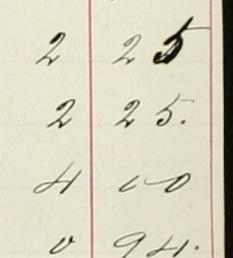 2 25
2 25.
4 00
0 94.